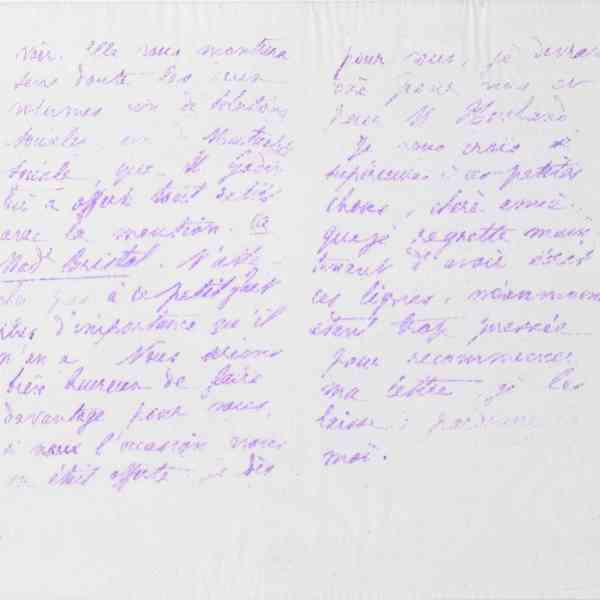 voir. Elle vous montrera
sans doute
volumes de Solutions
sociales, et de Mutualité
sociale, que M Godin
lui a offert tout relié
avec la mention. à
Mad^e Bristol. N'atta-
chez pas à ce petit fait
plus d'importance qu'il
n'en a. Nous serions
bien heureux de faire
davantage pour vous,
si nous l'occasion nous
en était offerte. je dis
pour vous, je devrais
dire pour vous et
pour M Howland.
Je vous crois si
supérieure à ces petites
choses, chère amie.
que je regrette main-
tenant d'avoir écrit
ces lignes, néanmoins
étant trop pressée
pour recommencer
ma lettre je les
laisse ;
moi.